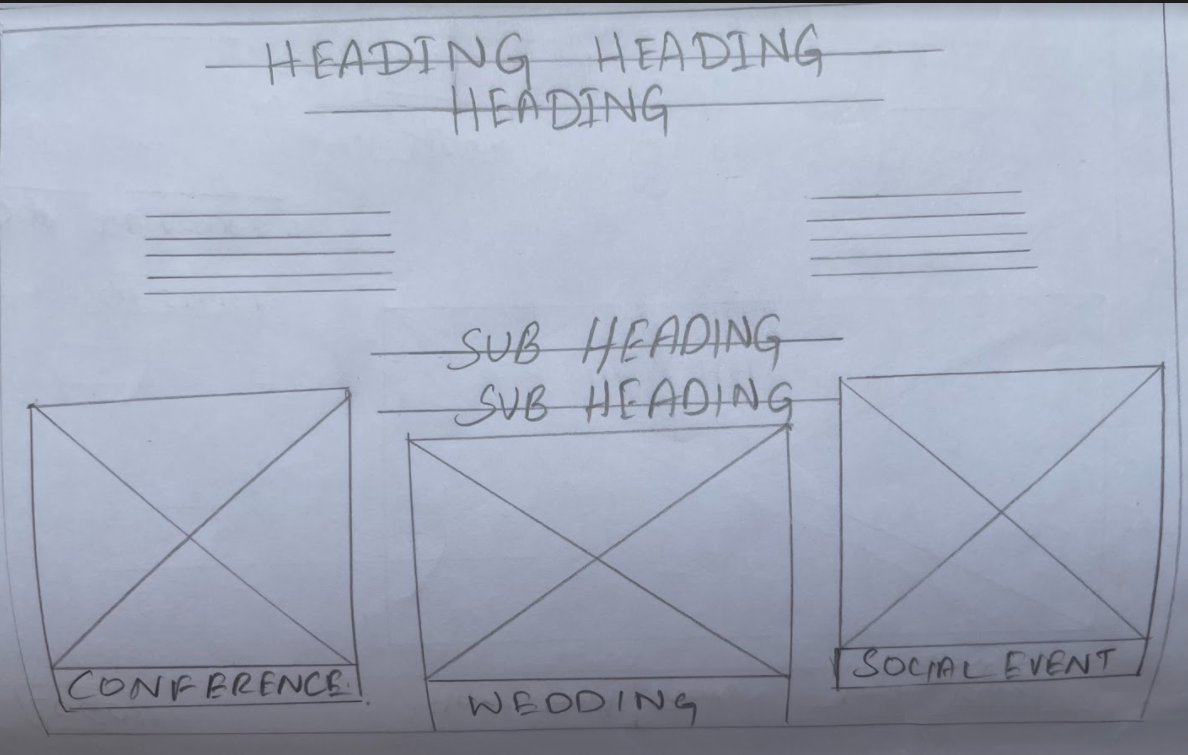 HEADING HEADING
HEADING
SUB HEADING
SUB HEADING
CONFERENCE
WEDDING
SOCIAL EVENT